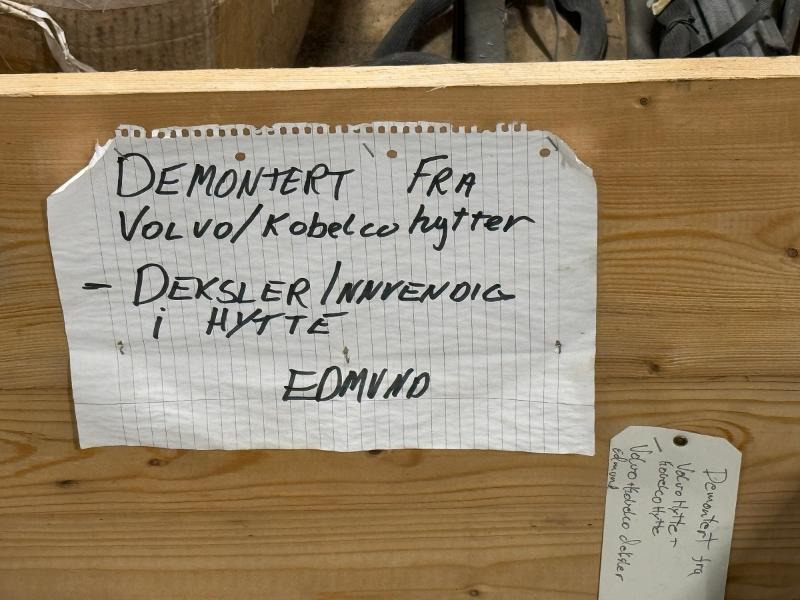 DEMONTERT FRA
VOLVO/Kobelco hytter
- DEKSLER INNVENDIG
i HYTTE
EDMUND
Demontert fra
Volvo Hytter
- Kobelco Hytte
Volvo + Kobelco deksler
Edmund